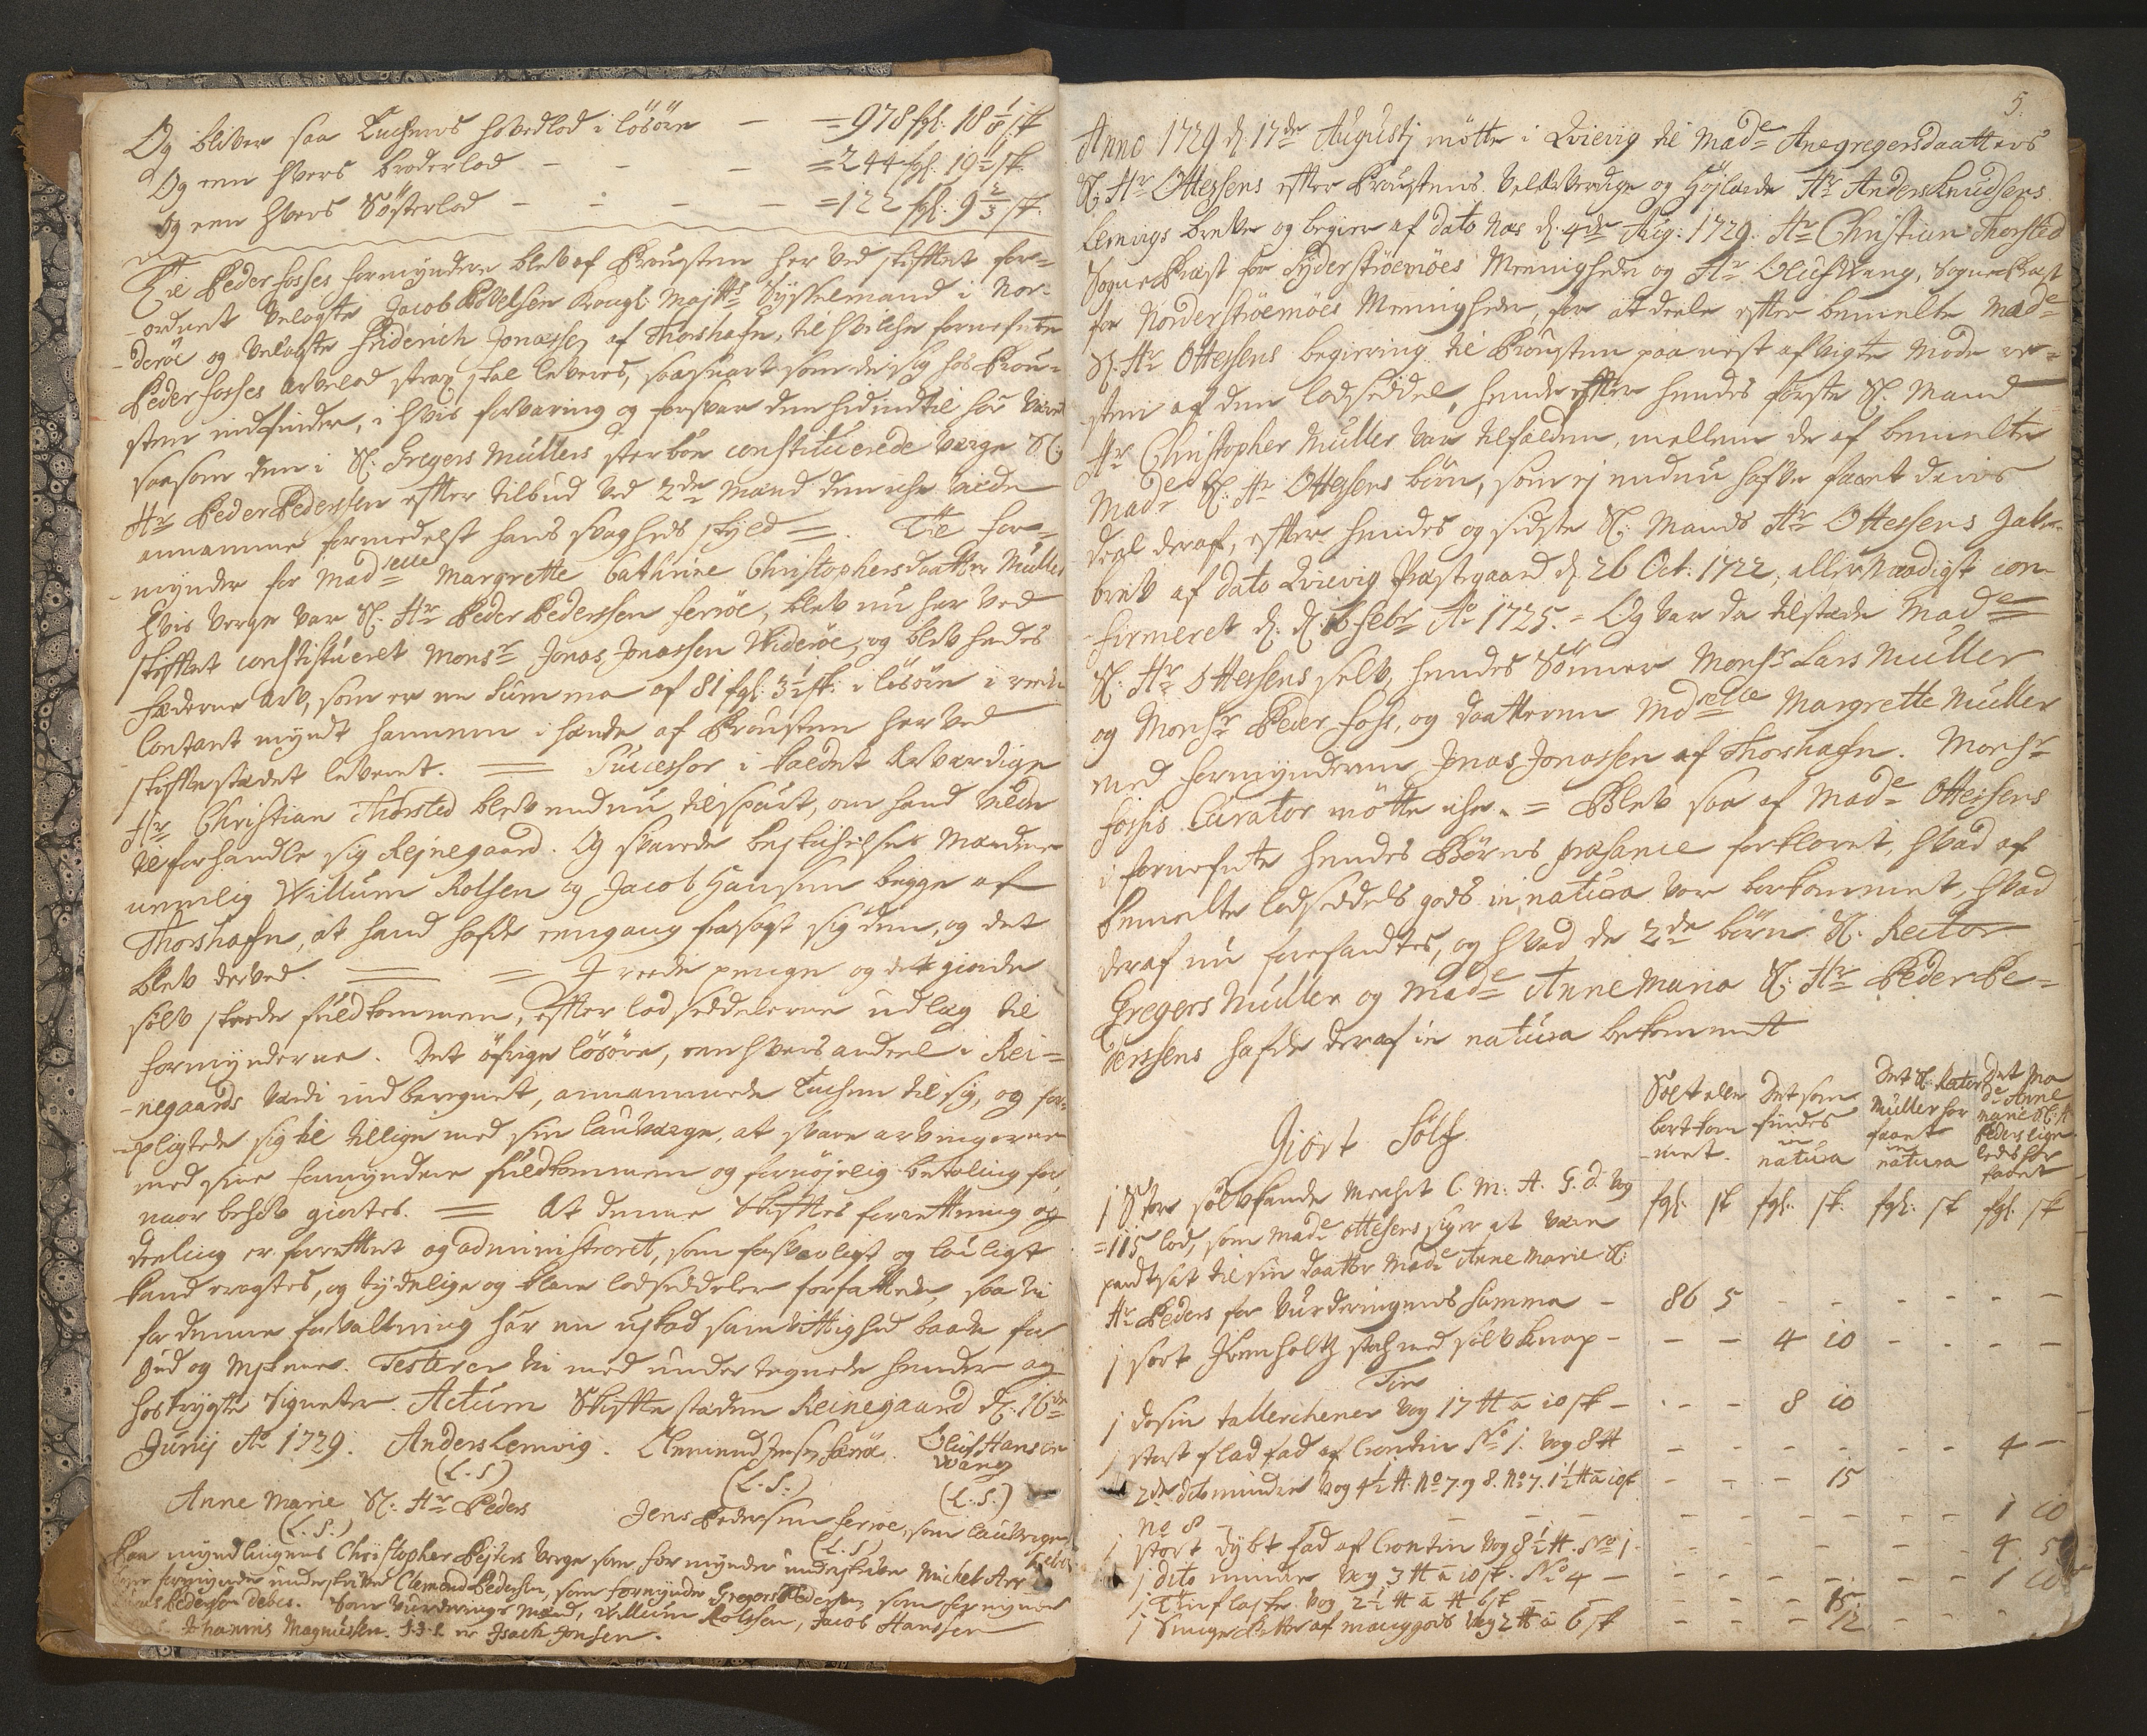 Og bliver saa Enchens hovedlod i løsøre — = 978 fgl: 18 1/6 sk
Og een hvers broderlod — — — = 244 fgl. 19 1/2 sk.
Og een hvers Søsterlod — — — = 122 fgl: 9 2/3 sk.
Til Peder fosses formyndere blev af Prousten her ved skifftet for-
-ordnet Velagte Jacob Povelsen Kongl: Majtts Sysselmand i Nor-
-derøe og Velagte Friderich Jonassen af Thorshafn, til hvilche fornefnte
Peder fosses arvelod strax skal leveres, saasnart som de sig hos Prou-
sten indfinder, i hvis forvaring og forsvar den hidindtil har været
saasom den i Sl: Gregers Mullers sterboe constituerede verge Sl:
Hr Peder Pedersen effter tilbud ved 2de Mænd den iche vilde
annamme formedelst hans svagheds skyld =. Til for-
-mynder for Madselle Margrette Cathrine Christophersdaatter Müller
hvis verge var Sl. Hr Peder Pederssen ferrøe, blev nu her ved
skifftet constitueret Monsr Jonas Jonassen Widerøe, og blev hendes
fæderne Arv, som er en Summa af 81 fgl: 3 1/2 sk: i løsøre i rede
Contant myndt hannem i hænde af Prousten her ved
skifftestædet leveret. = Successor i kaldet Ærværdige
Hr Christian Thorsted blev endnu tilspurt, om hand vilde
tilforhandle sig Rejnegaard. Og svarede beskichelses Mændene
nemlig Willum Rolsen og Jacob Hansen begge af
Thorshafn, at hand hafde eengang frasagt sig den, og det
blev derved. = = I reede penge og det giorde
sølv skeede fuldkommen, effter lodseddelerne udlæg til
formynderne. Det øfrige løsøre, een hvers andeel i Rei-
-negaards værdi indbereignet, annammede Enchen til sig, og for-
-pligtede sig til tillige med sin laugverge, at svare arvingerne
med sine formyndere fuldkommen og fornøjelig betaling for,
naar behov giøres. = At denne Skifftes forrettning og
deeling er forrettet og administreret, som forsvarligt og lovligt
kand eragtes, og tydelige og klare lodseddeler forfattede, saa vi
for denne forvaltning har en uskad samvittighed baade for
Gud og Mennisker. Testerer vi med undertegnede hender og
hostrygte Signeter. Actum Skiffte stæden Reinegaard d. 16de
Junij Ao 1729. Anders Lemvig. Clemend Jenssen færøe. Oluf Hansen
Wang
(L. S.) (L. S.) (L. S.)
Anne Marie Sl: Hr Peders Jens Pedersen ferroe, som laugverge
(L. S.) (L. S.)
Paa myndlingens Christopher Pejters verge som formynder underskriver Michel
som formynder underskriver Clemend Pedersen, som formynder Gregers Pedersen, som formynder
Pedersøn Debes. Som Vurderings Mænd, Willum Rolssen, Jacob Hanssen
Johannis Magnussen. J. J. S. er Isach Jonsen.
5.
Anno 1729 d. 17de Augustj møtte i Qvievig til Made Anegregersdaatters
Sl. Hr Ottessens effter Proustens Velærverdige og Højlærde Hr Anders Knudsens
Lemvigs breve og begier af dato Næs d: 4de Aug: 1729. Hr Christian Thorsted
Sogne Præst for Syderstrømøes Menigheder og Hr Oluf Wang, Sogne Præst
for Nørderstrømøes Menigheder, for at deele effter bemelte Made
Sl. Hr Ottessens begiering til Prousten paa nest afvigte Møde ve-
sten af den lodseddel, hende effter hendes første Sl. Mand
Hr Christopher Müller var tilfalden, mellem de af bemelte
Made Sl: Hr Ottessens børn, som ej endnu hafver faaet deris
deel deraf, effter hendes og sidste Sl: Mands Hr Ottessens gave-
brev af dato Qvievig Præstegaard d. 26 Oct: 1722, allernaadigst con-
firmeret d. 16 Febr Ao 1725. = Og var da tilstæde Made
Sl: Hr Ottessens selv, hendes Sønner Monsr Lars Müller
og Monsr Peder Foss, og daatteren Mdselle Margrette Müller
med formynderen Jonas Jonassen af Thorshafn. Monsr
fossis Curator møtte iche. = Blev saa af Made Ottessens
i fornefnte hendes Børns præsence forklaret, hvad af
bemelte lodseddels gods in natura var bortkommet, hvad
deraf nu forefandtes, og hvad de 2de børn Sl. Rector
Gregers Muller og Made Anne Maria Sl: Hr Peder Pe-
derssens hafde deraf in natura bekommet
Giort Sølf
Solt eller bortkom-met. Det som findes in natura Det Sl. Rector Müller har faaet in natura Det Made Anne Marie Sl: Hr Peders ligeledes har faaet
fgl: sk fgl: sk. fgl: sk fgl: sk
1 Stor sølvkande Merket C. M. A. G. d: vog
= 115 lod, som Made Ottesens siger at være
pandtsat til sin daatter Made Anne Marie Sl:
Hr Peders for Vurderingens Summa — 86 5 — — — — — —
1 sort Ibenholtz stoch med sølv knap — — — 4 10 — — — —
Tin
1 dosin tallerchener vog 17 ℔ à 10 sk — — — 8 10
1 stort flad fad af Crontin No 1. vog 8 ℔ — — — — — — 4 —
2de dito mindre vog 4 1/2 ℔. No 7 og 8. No 7. 1 1/2 ℔ à 10 sk — — — 15
No 8 — — — — — — — — 1 10
1 stort dybt fad af Crontin vog 8 1/2 ℔. No 1. — — — — — — 4 5
1 dito mindre vog 3 ℔ à 10 sk. No 4 — — — — — — — 1 10
1 Tinflaske vog 2 1/2 ℔ à ℔ 6 sk — — — — 15
1 af manggods vog 2 ℔ à 6 sk — — — 12 — — —